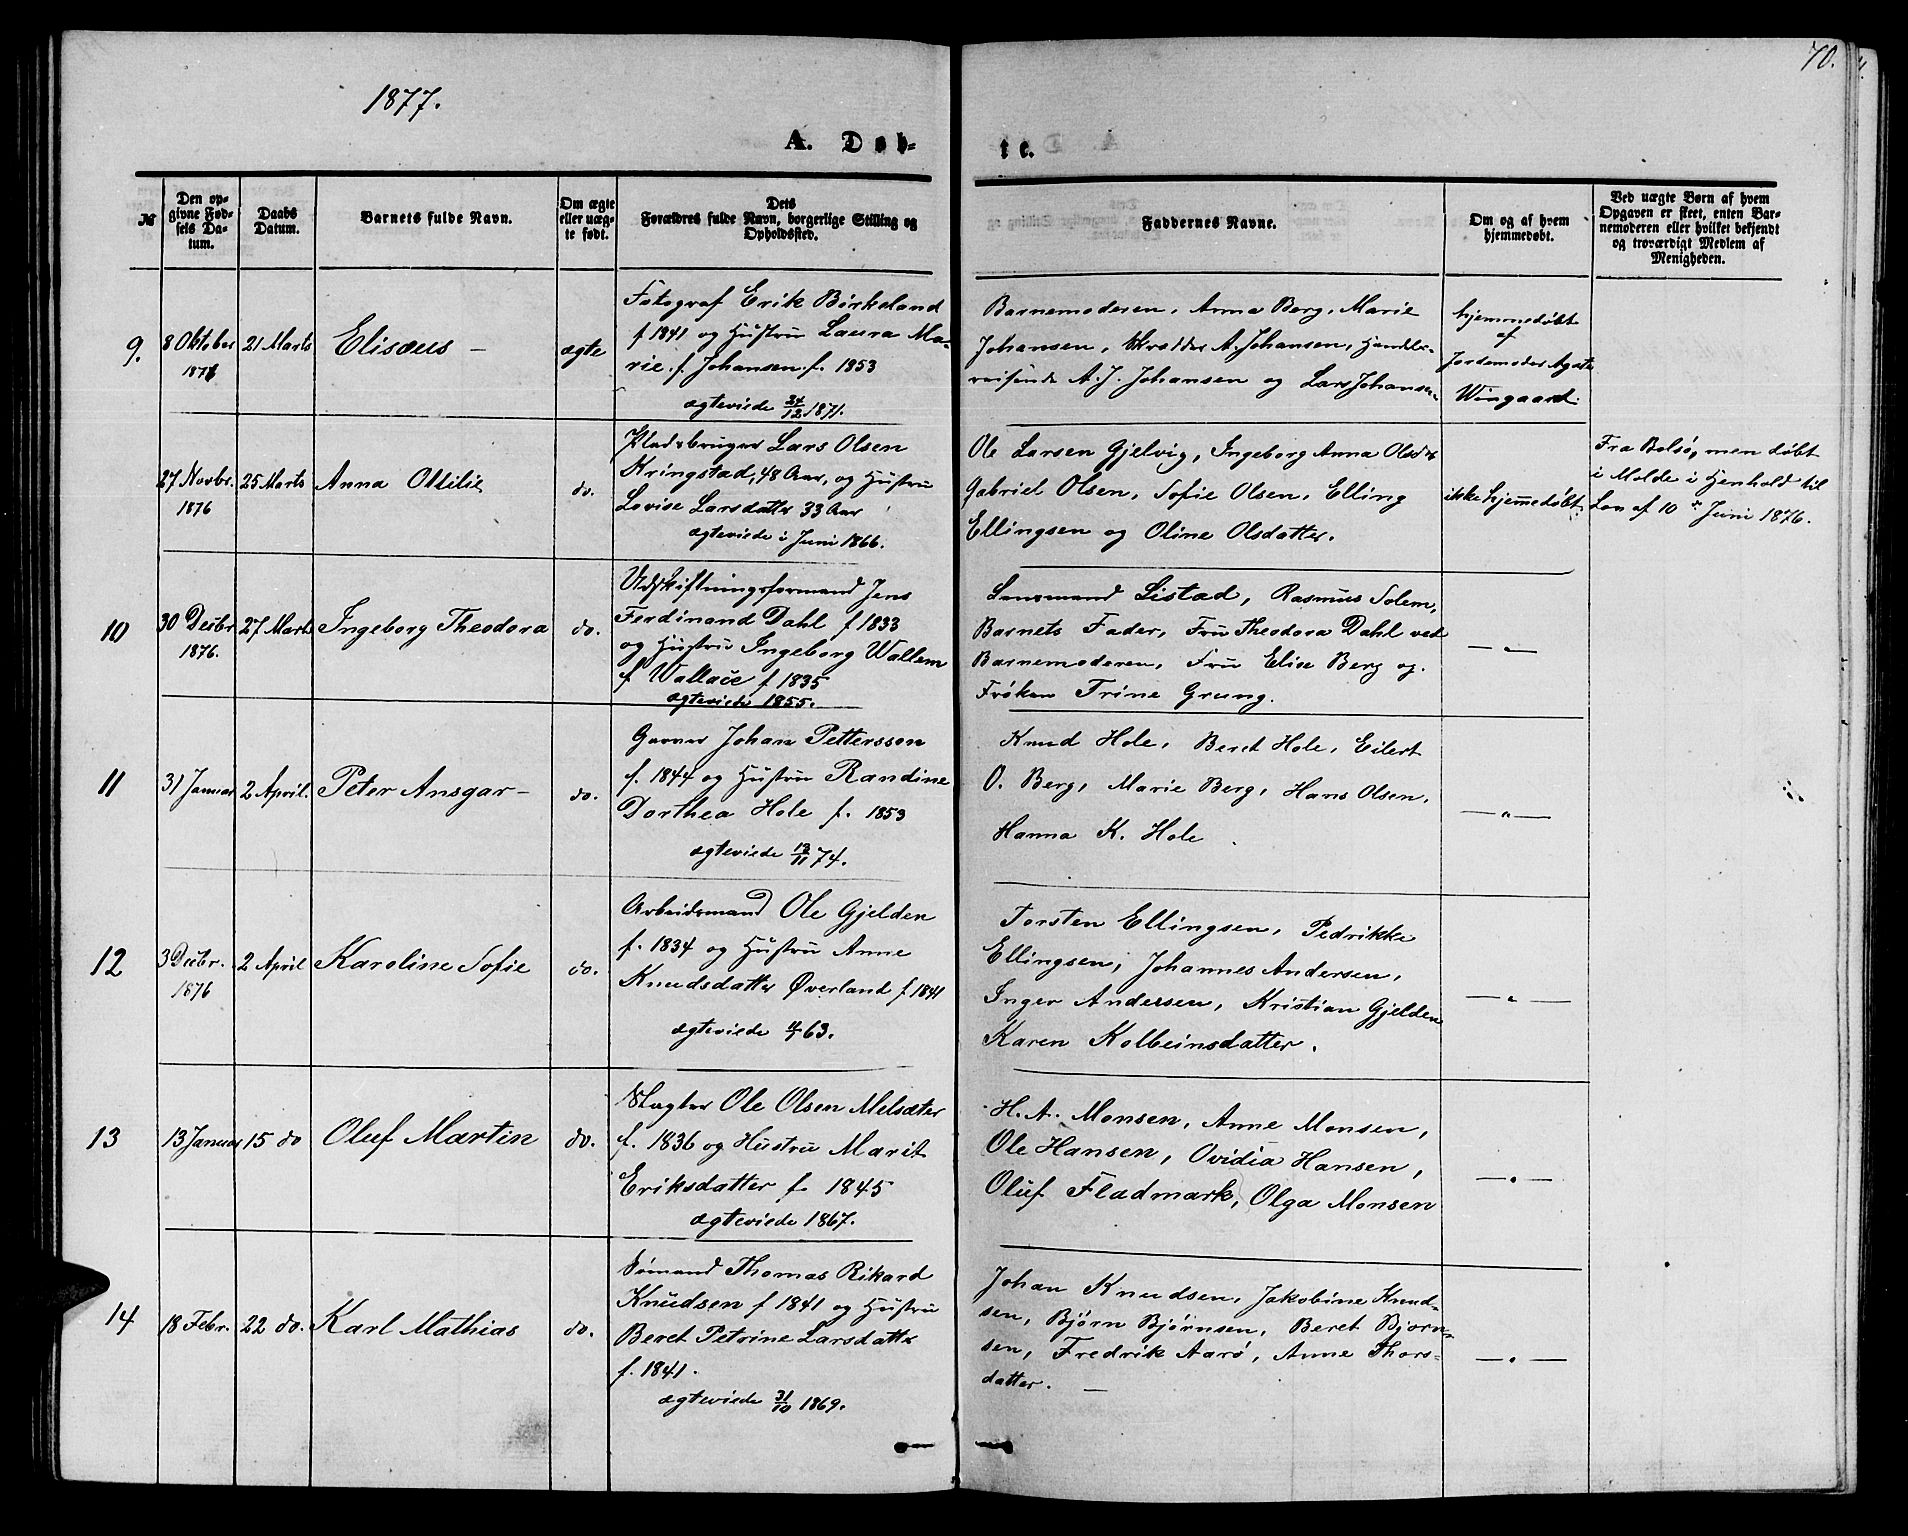 1877.
70.
A. Døb-
te.
№
Den op-
givne Fød-
sels Da-
tum.
Daabs
Datum.
Barnets fulde Navn.
Om ægte
eller uæg-
te født.
Dets
Forældres fulde Navn, borgerlige Stilling og
Opholdssted.
Faddernes Navne.
Om og af hvem
hjemmedøbt.
Ved uægte Børn af hvem
Opgaven er skeet, enten Bar-
nemoderen eller hvilket bekjendt
og troværdigt Medlem af
Menigheden.
9.
8 Oktober
21 Marts
Elisæus —
ægte
Fotograf Erik Børkeland
f 1841 og Hustru Laura Ma-
rie f. Johansen f. 1853
ægteviede 24/12 1871.
Barnemoderen, Anna Berg, Marie
Johansen, Skrædder A. Johansen, Handels-
reisende A. J. Johansen og Lars Johansen
hjemmedøbt
af
Jordemoder Agate
Wingaard.
27 Novbr.
1876
25 Marts
Anna Ottilie
do.
Pladsbruger Lars Olsen
Kringstad, 48 Aar, og Hustru
Lovise Larsdatter 33 Aar
ægteviede i Juni 1866.
Ole Larsen Gjelvig, Ingeborg Anna Olsdtr
Gabriel Olsen, Sofie Olsen, Elling
Ellingsen og Oline Olsdatter.
ikke hjemmedøbt
Fra Bolsø, men døbt
i Molde i Henhold til
Lov af 10 Juni 1876.
10
30 Decbr
1876.
27 Marts
Ingeborg Theodora
do.
Udskiftningsformand Jens
Ferdinand Dahl f 1833
og Hustru Ingeborg Wallem
f Wallace f 1835
ægteviede 1855.
Lensmand Listad, Rasmus Solem,
Barnets Fader, Fru Theodora Dahl ved
Barnemoderen, Fru Elise Berg og
Frøken Trine Grung.
— „ —
11
31 Januar
2 April.
Peter Ansgar —
do.
Garver Johan Pettersson
f. 1844 og Hustru Randine
Dorthea Hole f. 1853
ægteviede 13/11 74.
Knud Hole, Beret Hole, Eilert
O. Berg, Marie Berg, Hans Olsen,
Hanna K. Hole.
— „ —
12
3 Decbr.
1876
2 April
Karoline Sofie
do.
Arbeidsmand Ole Gjelden
f. 1834 og Hustru Anne
Knudsdatter Øverland f. 1841
ægteviede 63.
Torsten Ellingsen, Pedrikke
Ellingsen, Johannes Andersen,
Inger Andersen, Kristian Gjelden
Karen Kolbeinsdatter.
— „ —
13
13 Januar
15 do
Oluf Martin
do.
Slagter Ole Olsen Melsæter
f. 1836 og Hustru Marit
Eriksdatter f 1845
ægteviede 1867.
H. A. Monsen, Anne Monsen,
Ole Hansen, Ovidia Hansen,
Oluf Fladmark, Olga Monsen
— „ —
14
18 Febr.
22 do.
Karl Mathias
do.
Sømand Thomas Rikard
Knudsen f 1841 og Hustru
Beret Petrine Larsdatter
f. 1841.
ægteviede 31/10 1869.
Johan Knudsen, Jakobine Knud-
sen, Bjørn Bjørnsen, Beret Bjørn-
sen, Fredrik Aarø, Anne Thors-
datter. —
— „ —